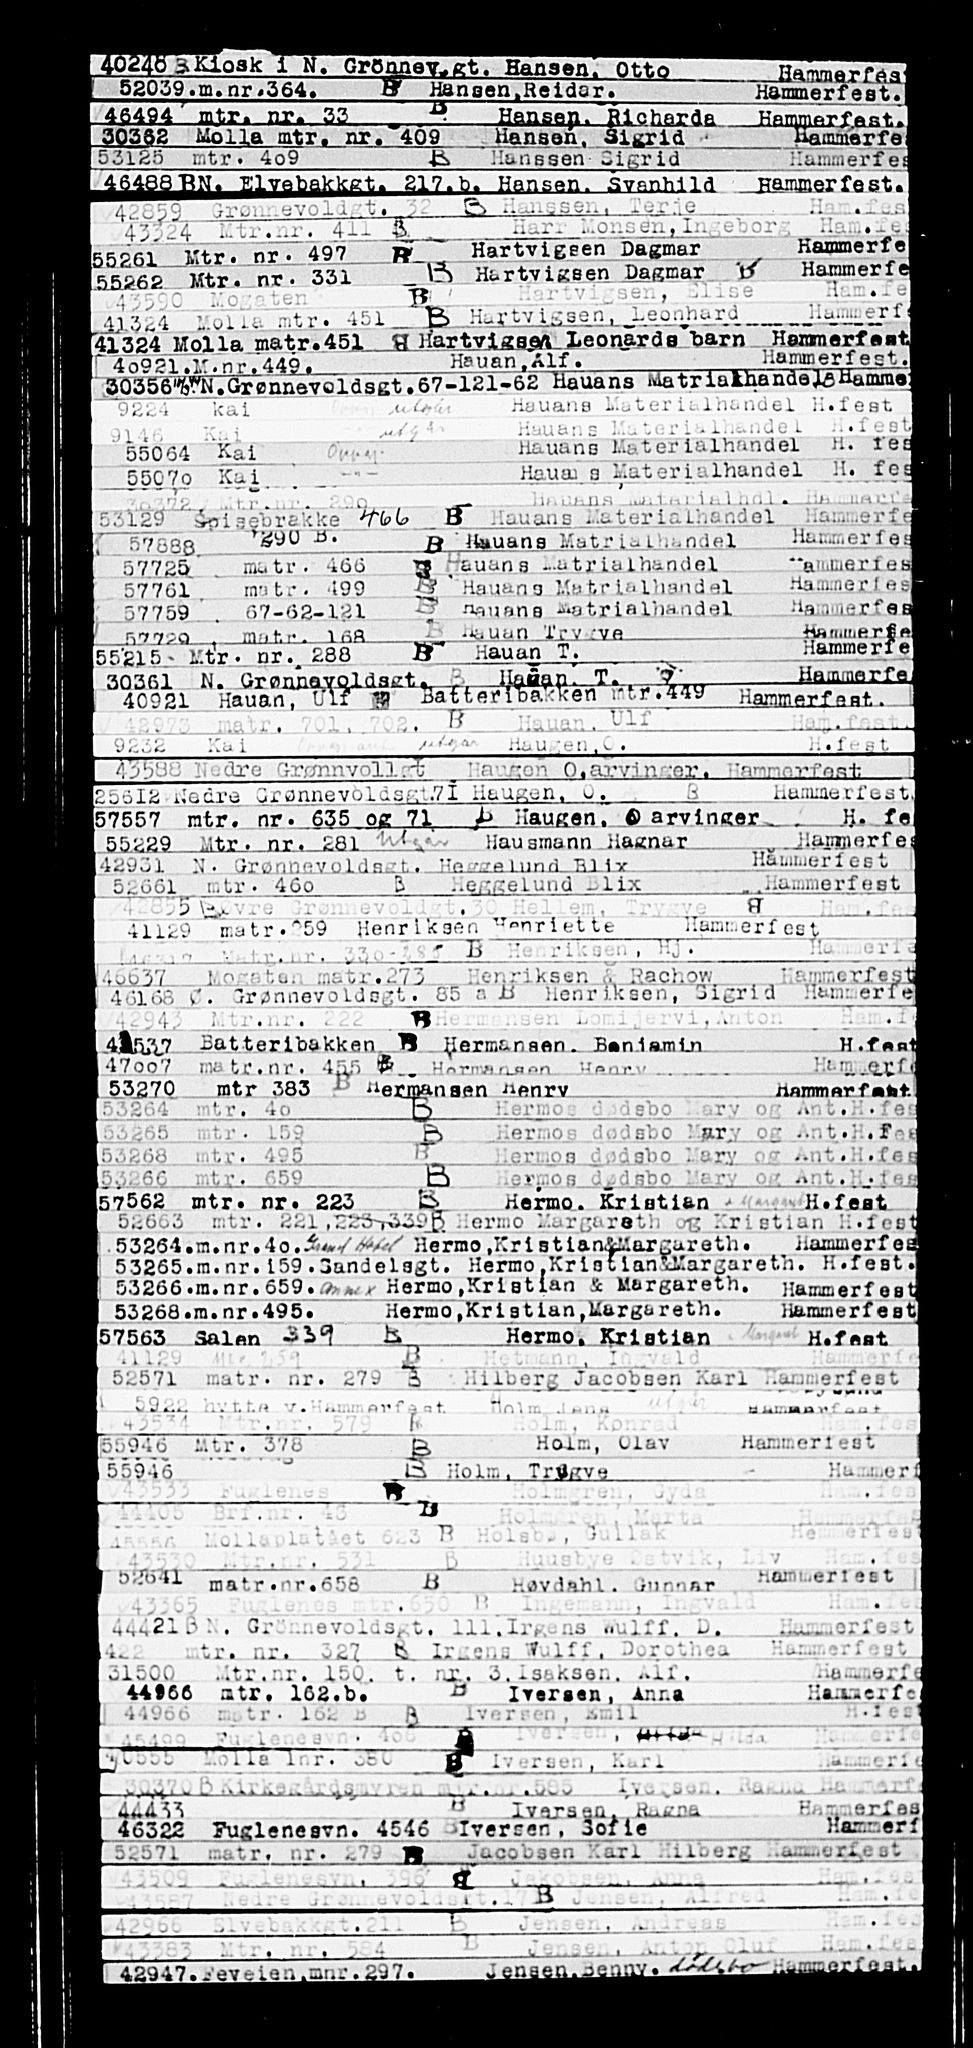 40248 B Kiosk i N. Grönnev.gt. Hansen, Otto Hammerfes
52039.m.nr.364. B Hansen,Reidar. Hammerfest.
46494 mtr. nr. 33 B Hansen, Richarda Hammerfest.
30362 Molla mtr. nr. 409 Hansen, Sigrid Hammerfe
53125 mtr. 4o9 B Hanssen Sigrid Hammerfes
46488 BN. Elvebakkgt. 217.b. Hansen. Svanhild Hammerfest.
42859 Grønnevoldgt. 32 B Hanssen, Terje Ham.fes
43324 Mtr.nr. 411 B Harr Monsen,Ingeborg Ham.fes
55261 Mtr. nr. 497 B Hartvigsen Dagmar Hammerfe
55262 Mtr. nr. 331 B Hartvigsen Dagmar B Hammerfe
43590 Mogaten B Hartvigsen, Elise Ham.fe
41324 Molla mtr. 451 B Hartvigsen, Leonhard Hammerf
41324 Molla matr.451 B Hartvigsen Leonards barn Hammerfest
4o921.M.nr.449. Hauan,Alf. Hammerfest.
30356 N.Grønnevoldsgt.67-121-62 Hauans Matrialhandel B Hamme
9224 kai utgår Hauans Materialhandel H.fest
9146 Kai utgår Hauans Materialhandel H.fest
55064 Kai Hauans Materialhandel H. fes
5507o Kai -"- Hauans Materialhandel H. fes
30372 Mtr.nr. 290 Hauans Materialhdl. Hammerfe
53129 Spisebrakke 466 B Hauans Materialhandel Hammerfe
57888 290 B. B Hauans Matrialhandel Hammerfes
57725 matr. 466 B Hauans Matrialhandel Hammerfes
57761 matr. 499 B Hauans Matrialhandel Hammerfes
57759 67-62-121 B Hauans Matrialhandel Hammerfes
57729 matr. 168 B Hauan Trygve Hammerfe
55215 Mtr. nr. 288 B Hauan T. Hammerfe
30361 N. Grønnevoldsgt. B Hauan. T. Hammerfe
40921 Hauan, Ulf B Batteribakken mtr.449 Hammerfest.
42973 matr. 701, 702. B Hauan, Ulf Ham.fest.
9232 Kai utgår Haugen,O. H.fest
43588 Nedre Grønnvollgt Haugen O,arvinger. Hammerfest
25612 Nedre Grønnevoldsgt.71 Haugen, O. B Hammerfest.
57557 mtr. nr. 635 og 71 B Haugen, O arvinger H. fe
55229 Mtr. nr. 281 Utgår Hausmann Ragnar Hammerfes
42931 N. Grønnevoldsgt. Heggelund Blix Hammerfest
52661 mtr. 46o B Heggelund Blix Hammerfest
42855 Øvre Grønnevoldgt.30 Hellem, Trygve B Ham.fes
41129 matr.259 Henriksen Henriette Hammerfest
Matr.nr. 330-285 B Henriksen, Hj. Hammerfe
46637 Mogaten matr.273 Henriksen & Rachow Hammerfest
46168 Ø. Grønnevoldsgt. 85 a B Henriksen, Sigrid Hammerfe
42943 Mtr.nr. 222 B Hermansen Lomijervi,Anton Ham.f
4 537 Batteribakken B Hermansen. Beniamin H.fest
47oo7 matr.nr. 455 B Hermansen Henry Hammerf
53270 mtr 383 B Hermansen Henry Hammerfest
53264 mtr. 4o B Hermos dødsbo Mary og Ant.H.fes
53265 mtr. 159 B Hermos dødsbo Mary og Ant.H.fes
53268 mtr. 495 B Hermos dødsbo Mary og Ant.H.fes
53266 mtr. 659 B Hermos dødsbo Mary og Ant.H.fes
57562 mtr. nr. 223 B Hermo, Kristian + Margaret H.fest
52663 mtr. 221,223,339 B Hermo Margareth og Kristian H.fest
53264.m.nr.4o. Grand Hotel Hermo,Kristian&Margareth. Hammerfes
53265.m.nr.159.Sandelsgt. Hermo,Kristian&Margareth. H.fest.
53266.m.nr.659. annex Hermo,Kristian & Margareth. Hammerfest
53268.m.nr.495. Hermo,Kristian,Margareth. Hammerfest
57563 Salen 339 B Hermo. Kristian + Margaret H.fest
41129 Mtr. 259 B Hetmann, Ingvald Hammerfe
52571 matr. nr. 279 B Hilberg Jacobsen Karl Hammerfest
5922 hytte v.Hammerfest Holm Jens utgår Hammerfest
43534 Mtr.nr. 579 B Holm, Konrad Ham.fes
55946 Mtr. 378 B Holm, Olav Hammerfest
55946 B Holm, Trygve Hammerf
43533 Fuglenes B Holmgren, Gyda Ham.fes
44405 Brf.nr. 48 B Holmgren, Marta Hammerfes
Mollaplatået 623 B Holsbø, Gullak Hammerfest
43530 Mtr.nr. 531 B Huusbye Østvik, Liv Ham.fes
52641 matr.nr.658 B Høvdahl. Gunnar Hammerfest
43365 Fuglenes mtr.650 B Ingemann, Ingvald Ham.fes
44421 B N. Grönnevoldsgt. 111.Irgens Wulff. D. Hammerfest
422 mtr. nr. 327 B Irgens Wulff. Dorothea Hammerfest
31500 Mtr.nr. 150. t. nr. 3.Isaksen. Alf. Hammerfe
44966 mtr. 162.b. B Iversen, Anna Hammerfe
44966 matr. 162 B B Iversen, Emil H.fest
45499 Fuglenesvn. 468 B Iversen, Hilda Hammerfe
70555 Molla lnr. 380 B Iversen, Karl Hammerfe
30370 B Kirkegårdsmyren mtr.nr.585 Iversen. Ragna Hammerf
44433 B Iversen, Ragna Hammerfes
46322 Fuglenesvn. 4546 B Iversen, Sofie Hammerf
52571 matr. nr. 279 B Jacobsen Karl Hilberg Hammerfest
43509 Fuglenesvn, 396 B Jakobsen, Anna Ham.fes
43587 Nedre Grønnevoldsgt.17 B Jensen, Alfred Ham.fe
42966 Elvebakkgt.211 B Jensen, Andreas Ham.fes
43383 Mtr. nr. 584 B Jensen, Anton Oluf Ham.fes
42947.Feveien,mnr.297. Jensen,Benny. dödsbo Hammerfest.